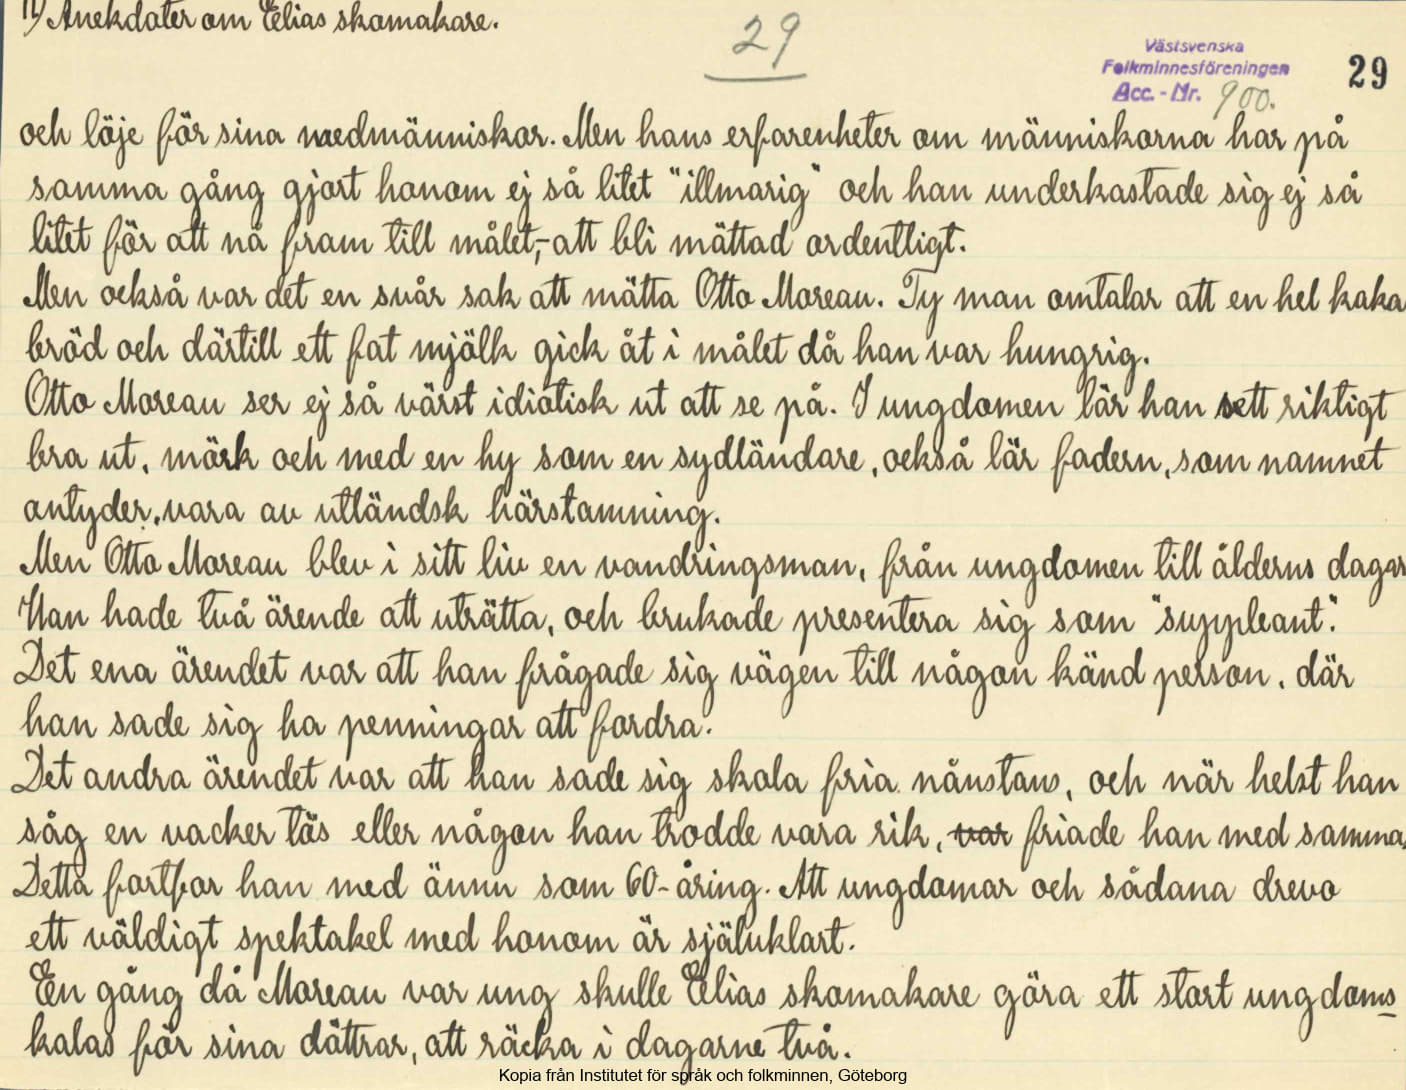 11) Anekdoter om Elias skomakare.
29
Västsvenska
Folkminnesföreningen
Acc. - Nr. 900.
29
och löje för sina medmänniskor. Men hans erfarenheter om människorna har på
samma gång gjort honom ej så litet "illmarig" och han underkastade sig ej så
litet för att nå fram till målet,-att bli mättad ordentligt.
Men också var det en svår sak att mätta Otto Moreau. Ty man omtalar att en hel kaka
bröd och därtill ett fat mjölk gick åt i målet då han var hungrig.
Otto Moreau ser ej så värst idiotisk ut att se på. I ungdomen lär han sett riktigt
bra ut, mörk och med en hy som en sydländare, också lär fadern, som namnet
antyder, vara av utländsk härstamning.
Men Otto Moreau blev i sitt liv en vandringsman, från ungdomen till ålderns dagar
Han hade två ärende att uträtta, och brukade presentera sig som "suppleant".
Det ena ärendet var att han frågade sig vägen till någon känd person, där
han sade sig ha penningar att fordra.
Det andra ärendet var att han sade sig skola fria nånstans, och när helst han
såg en vacker tös eller någon han trodde vara rik, var friade han med samma.
Detta fortfor han med ännu som 60-åring. Att ungdomar och sådana drevo
ett väldigt spektakel med honom är självklart.
En gång då Moreau var ung skulle Elias skomakare göra ett stort ungdoms
kalas för sina döttrar, att räcka i dagarne två.
Kopia från Institutet för språk och folkminnen, Göteborg